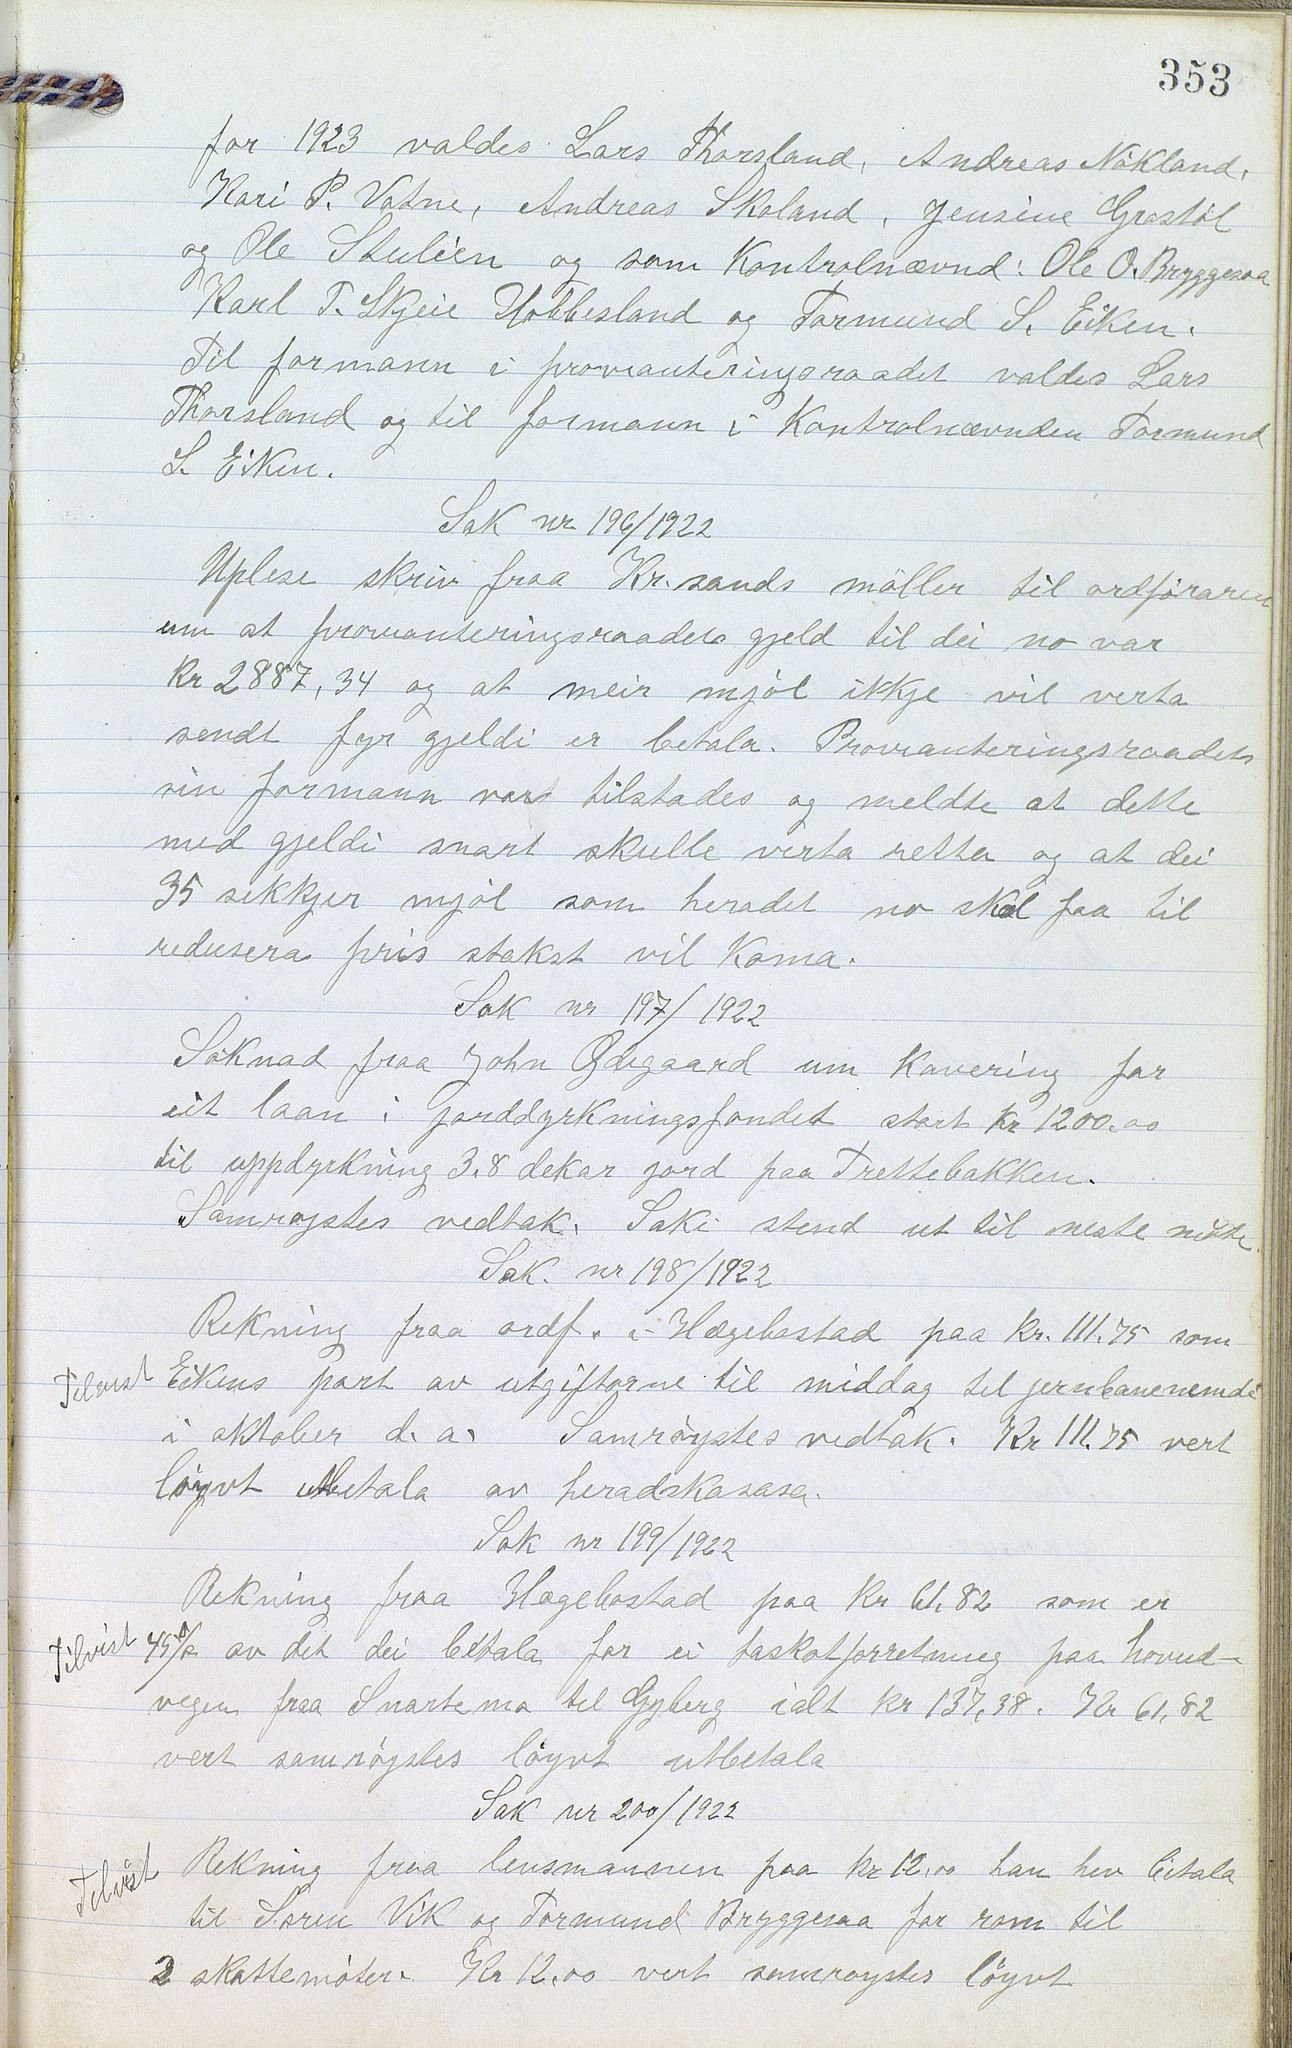 353
for 1923 valdes Lars Thorsland, Andreas Nökland,
Kari P. Vatne, Andreas Skoland, Jensine Grostöl
og Ole Stulien og som Kontrolnævnd: Ole O. Bryggesaa
Karl T. Skjeie Hobbesland og Tormund S. Eiken.
Til formann i provianteringsraadet valdes Lars
Thorsland og til formann i Kontrolnævnden Tormund
S. Eiken.
Sak nr 196/1922
Uplese skriv fraa Kr.sands möller til ordföraren
um at provianteringsraadets gjeld til dei no var
kr 2887,34 og at meir mjöl ikkje vil verta
sendt fyr gjeldi er betala. Provianteringsraadets
sin formann var tilstades og meldte at dette
med gjeldi snart skulle verta retta og at dei
35 sekkjer mjöl som heradet no skal faa til
redusera pris stakst vil koma.
Sak nr 197/1922
Söknad fraa John Ødegaard um kavering for
eit laan i jorddyrkningsfondet stort kr 1200.00
til uppdyrkning 3.8 dekar jord paa Trettebakken.
Samröystes vedtak. Saki stend ut til neste möte.
Sak. nr 198/1922
Rekning fraa ordf. i Hægebostad paa kr. 111.75 som
Tilvist Eikens part av utgiftorne til middag til jernbanenemdi
i oktober d. a. Samröystes vedtak. Kr 111.75 vert
löyvt utbetala av heradskassa.
Sak nr 199/1922
Rekning fraa Hægebostad paa kr 61,82 som er
Tilvist 45% av det dei betala for ei taskatforretning paa hovud-
vegen fraa Snartemo til Gyberg ialt kr 137,38. Kr 61,82
vert samröystes löyvt utbetala
Sak nr 200/1922
Tilvist Rekning fraa lensmannen paa kr 12,00 han hev betala
til Sören Vik og Tormund Bryggesaa for rom til
2 skattemöter. Kr 12.00 vert samröystes löyvt